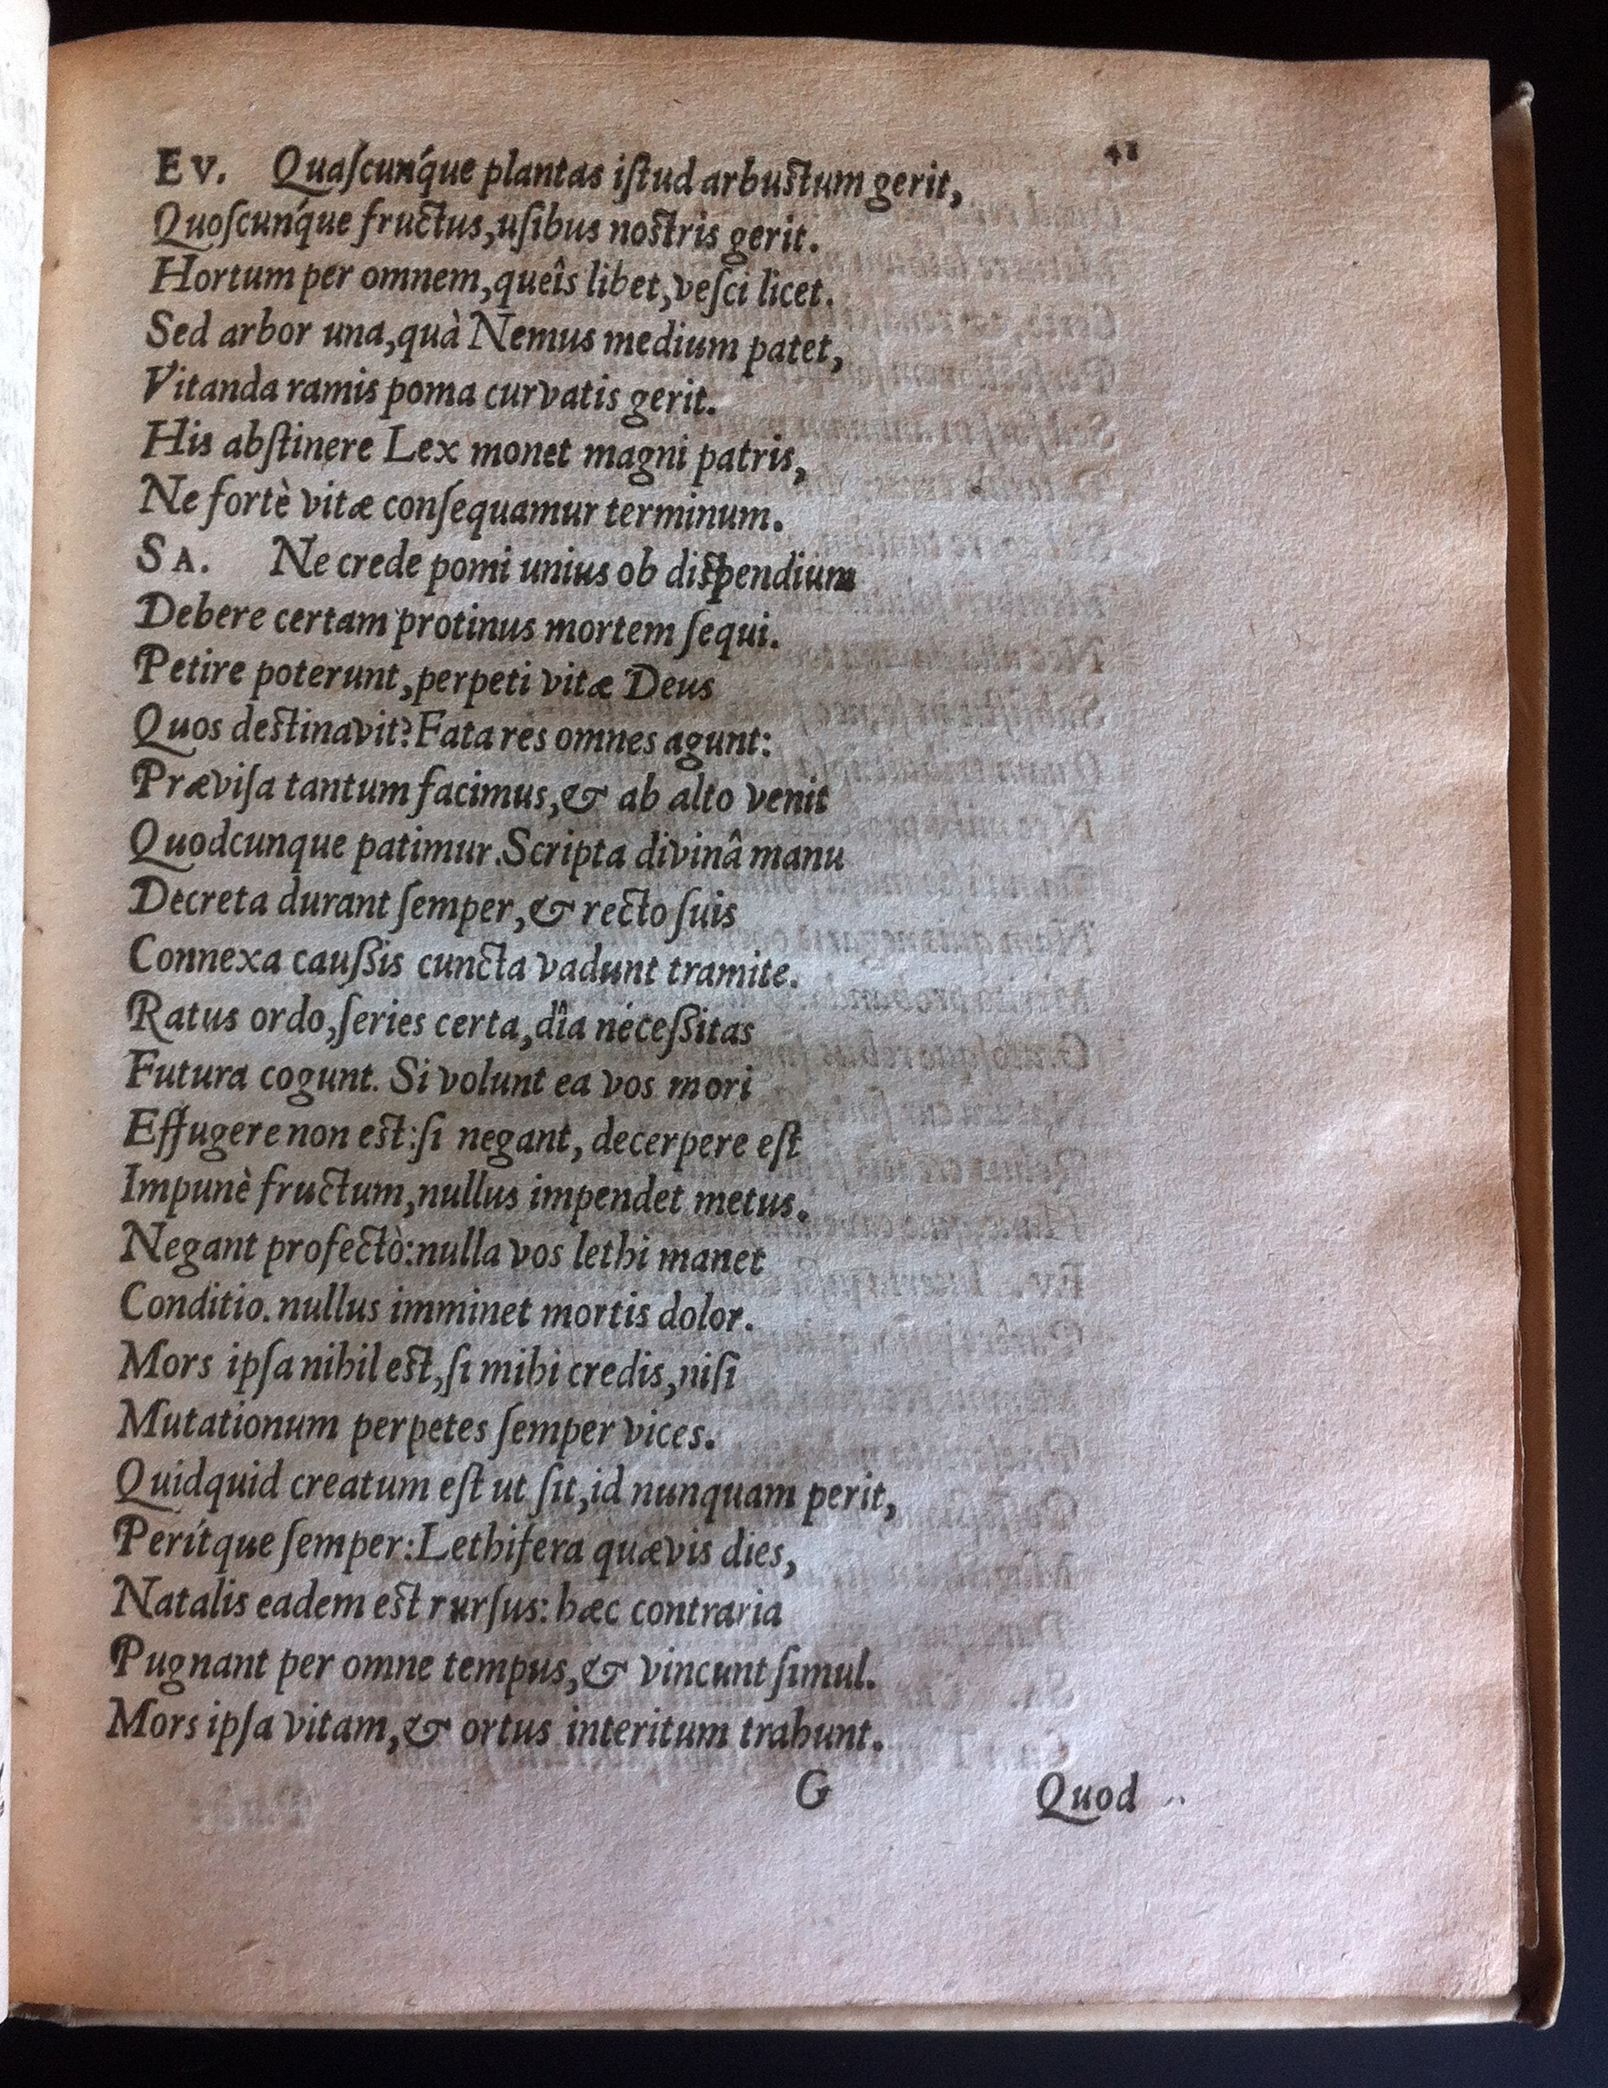 41
EV. Quaſcunq́ue plantas iſtud arbustum gerit,
Quoſcunq́ue fructus, uſibus nostris gerit.
Hortum per omnem, queîs libet, veſci licet.
Sed arbor una, quà Nemus medium patet,
Vitanda ramis poma curvatis gerit.
His abſtinere Lex monet magni patris,
Ne fortè vitæ conſequamur terminum.
SA. Ne crede pomi unius ob dispendium
Debere certam protinus mortem ſequi.
Petire poterunt, perpeti vitæ Deus
Quos destinavit? Fata res omnes agunt:
Præviſa tantum facimus, & ab alto venit
Quodcunque patimur. Scripta divinâ manu
Decreta durant ſemper, & recto ſuis
Connexa cauſſis cuncta vadunt tramite.
Ratus ordo, ſeries certa, dîa neceſſitas
Futura cogunt. Si volunt ea vos mori
Effugere non est: ſi negant, decerpere eſt
Impunè fructum, nullus impendet metus.
Negant profectò: nulla vos lethi manet
Conditio. nullus imminet mortis dolor.
Mors ipſa nihil est, ſi mihi credis, niſi
Mutationum perpetes ſemper vices.
Quidquid creatum eſt ut ſit, id nunquam perit,
Perítque ſemper: Lethifera quævis dies,
Natalis eadem est rurſus: hæc contraria
Pugnant per omne tempus, & vincunt ſimul.
Mors ipſa vitam, & ortus interitum trahunt.
G Quod